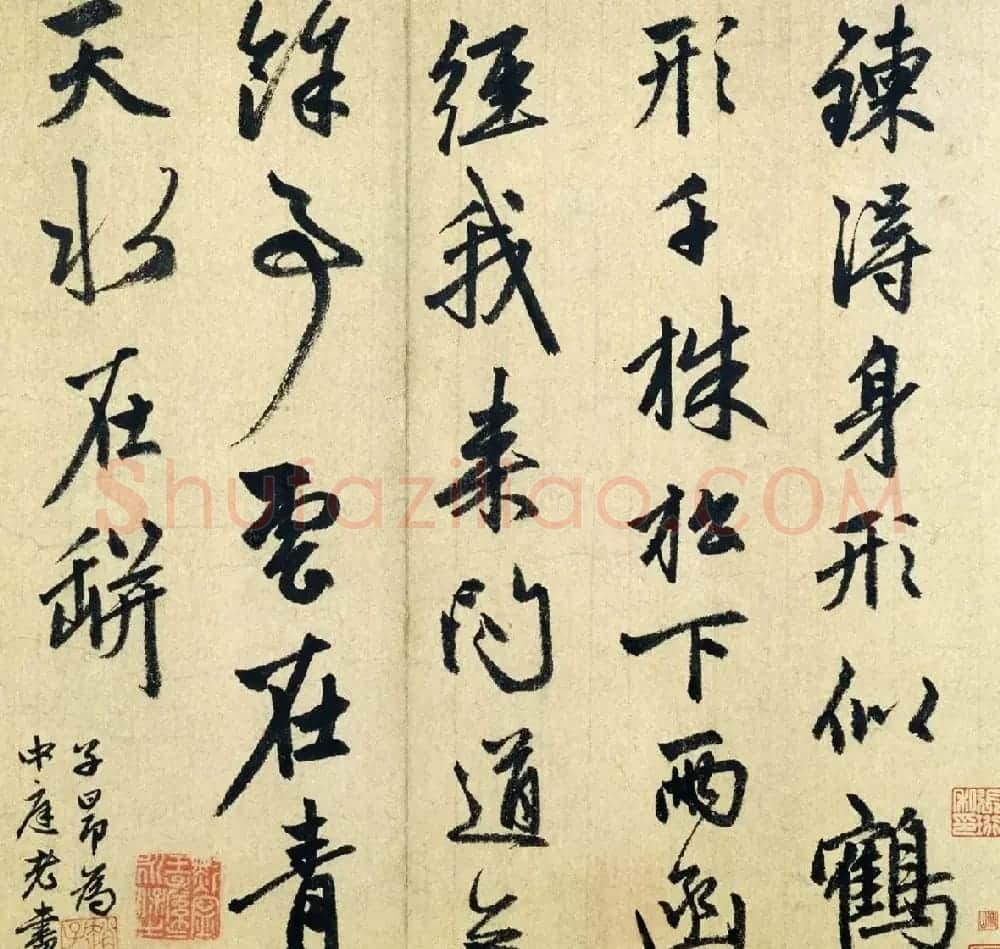 鍊得身形似鶴
形千株松下兩函
經我来問道無
餘事雲在青
天水在缾
子昂為
中庭老書
Shufaziliao.COM